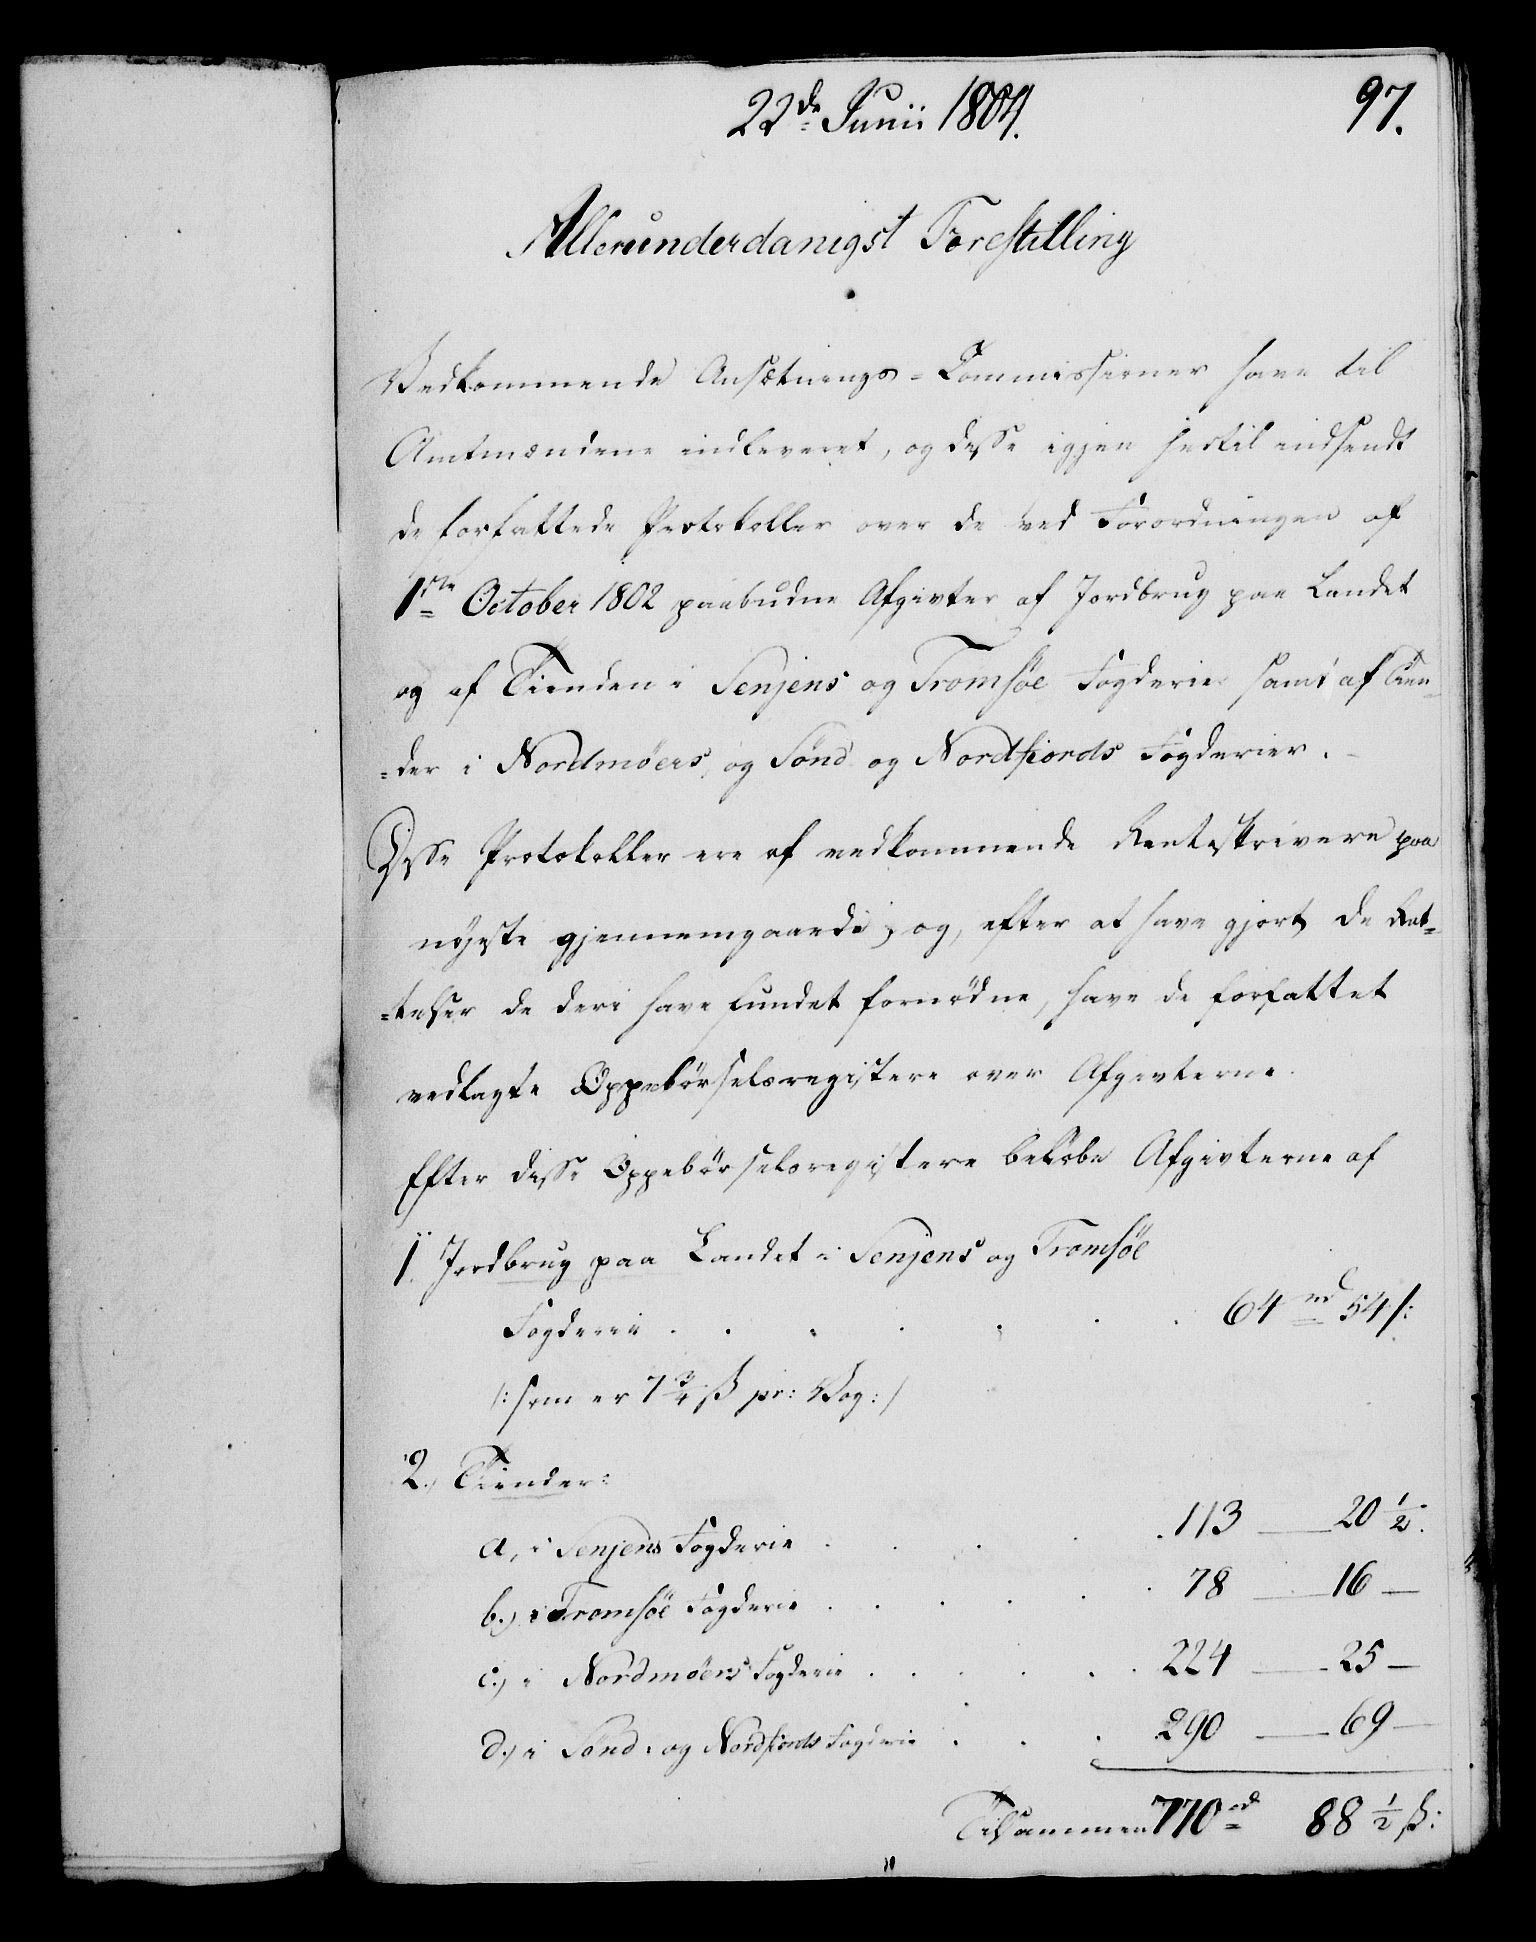 22de Junii 1804.
97.
Allerunderdanigst Forestilling
Vedkommende Ansætnings-Commissioner have til
Amtmændene indleveret, og disse igjen hertil indsendt
de forfattede Protokoller over de ved Forordningen af
1ste October 1802 paabudne Afgivter af Jordbrug paa Landet
og af Tienden i Senjens og Tromsøe Fogderie samt af Tien-
-der i Nordmøers, og Sønd og Nordfiords Fogderier.
Disse Protokoller ere af vedkommende Renteskrivere paa
nøjeste gjennemgaaede; og, efter at have gjort de Ret-
-telser de deri have fundet fornødne, have de forfattet
vedlagte Oppebørselsregistere over Afgivterne.
Efter disse Oppebørselsregistere beløbe Afgivterne af
1. Jordbrug paa Landet i Senjens og Tromsøe
Fogderie . . . . . . . 64 rd 54 ß:
/: som er 7 3/4 ß pr: Vog :/
2., Tiender:
a, i Senjens Fogderie . . . . . 113 — 20 1/2.
b.) i Tromsøe Fogderie . . . . . 78 — 16 —
c.) i Nordmøers Fogderie . . . . . 224 — 25 —
d.) i Sønd- og Nordfiords Fogderie . . . 290 — 69 —
Tilsammen 770 rd 88 1/2 ß: